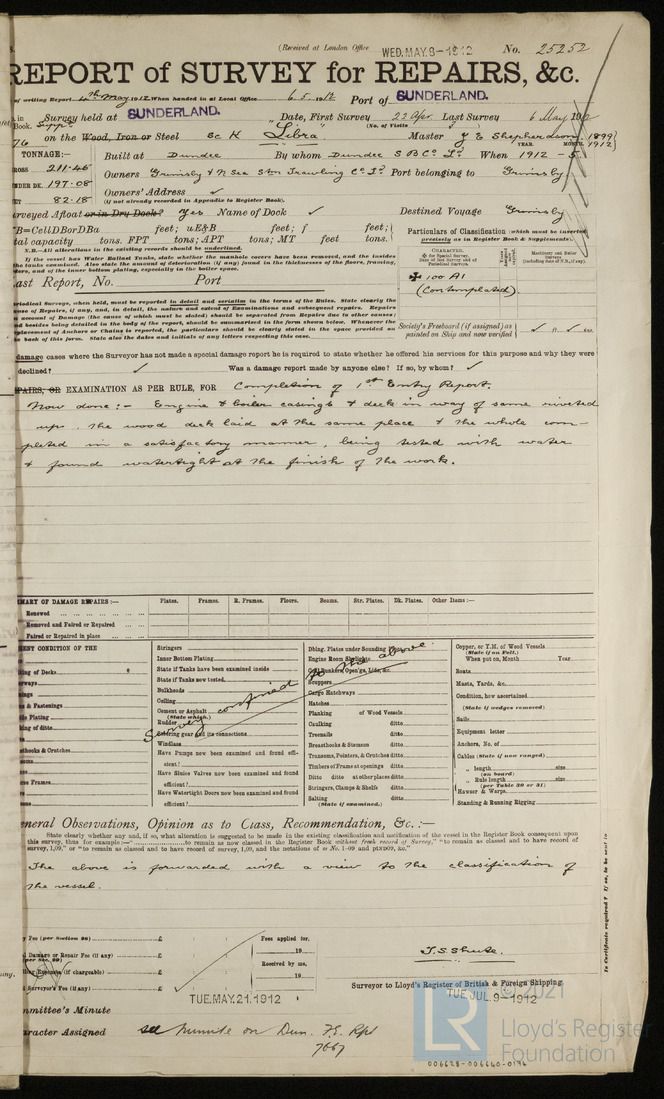 (Received at London Office WED. MAY. 8-1912 No. 25252
REPORT of SURVEY for REPAIRS, &c.
of writing Report 4th May 1912 When handed in at Local Office 6. 5. 1912 Port of SUNDERLAND.
in Survey held at SUNDERLAND. Date, First Survey 22 Apr. Last Survey 6 May, 1912
Book. (No. of Visits )
76 on the Wood, Iron or Steel Sc K "Libra" Master J E Shepherdson 1899
YEAR. MONTH. 1912
TONNAGE:— Built at Dundee By whom Dundee S B Co Ld When 1912 - 5
GROSS 211.45 Owners Grimsby & N Sea Stm Trawling Co Ld Port belonging to Grimsby
UNDER DK. 197.08 Owners' Address ✓
NET 82.18 (if not already recorded in Appendix to Register Book).
Surveyed Afloat or in Dry Dock? Yes Name of Dock ✓ Destined Voyage Grimsby
B=CellDBorDBa feet; uE&B feet; f feet;
total capacity tons. FPT tons; APT tons; MT feet tons.
Particulars of Classification (which must be inserted precisely as in Register Book & Supplements).
N.B.—All alterations in the existing records should be underlined.
If the vessel has Water Ballast Tanks, state whether the manhole covers have been removed, and the insides
the tanks examined. Also state the amount of deterioration (if any) found in the thicknesses of the floors, framing,
and of the inner bottom plating, especially in the boiler space.
CHARACTER.
✠ 100 A1
(Contemplated)
Last Report, No. Port
Periodical Surveys, when held, must be reported in detail and seriatim in the terms of the Rules. State clearly the
cause of Repairs, if any, and, in detail, the nature and extent of Examinations and subsequent repairs. Repairs
on account of Damage (the cause of which must be stated) should be separated from Repairs due to other causes;
and besides being detailed in the body of the report, should be summarised in the form shewn below. Whenever the
replacement of Anchors or Chains is reported, the particulars should be clearly stated in the space provided on
the back of this form. State also the dates and initials of any letters respecting this case.
Society's Freeboard (if assigned) as painted on Ship and now verified
damage cases where the Surveyor has not made a special damage report he is required to state whether he offered his services for this purpose and why they were
declined? ✓ Was a damage report made by anyone else? If so, by whom? ✓
REPAIRS, OR EXAMINATION AS PER RULE, FOR Completion of 1st Entry Report.
Now done:- Engine & boiler casings & deck in way of same riveted
up, the wood deck laid at the same place & the whole com-
pleted in a satisfactory manner, being tested with water
& found watertight at the finish of the work.
SUMMARY OF DAMAGE REPAIRS:— Plates. Frames. R. Frames. Floors. Beams. Str. Plates. Dk. Plates. Other Items:—
Renewed
Removed and Faired or Repaired
Faired or Repaired in place
PRESENT CONDITION OF THE
Stringers
Inner Bottom Plating
State if Tanks have been examined inside
State if Tanks now tested
Bulkheads
Ceiling
Cement or Asphalt
(State which.)
Rudder
Steering gear and its connections
Windlass
Have Pumps now been examined and found efficient?
Have Sluice Valves now been examined and found efficient?
Have Watertight Doors now been examined and found efficient?
Dblng. Plates under Sounding Pipes
Engine Room Skylights
Coal Bunkers, Open'gs, Lids, &c.
Scuppers
Cargo Hatchways
Hatches
Planking of Wood Vessels
Caulking ditto
Treenails ditto
Breasthooks & Stemson ditto
Transoms, Pointers, & Crutches ditto
Timbers of Frame at openings ditto
Ditto ditto at other places ditto
Stringers, Clamps & Shelfs ditto
Salting ditto
(State if examined.)
Copper, or Y.M. of Wood Vessels
(State if on Felt.)
When put on, Month Year
Boats
Masts, Yards, &c.
Condition, how ascertained
(State if wedges removed)
Sails
Equipment letter
Anchors, No. of
Cables (State if now ranged)
„ length size
(on board)
„ Rule length size
(per Table 30 or 31)
Hawser & Warps
Standing & Running Rigging
Survey confined to the above.
General Observations, Opinion as to Class, Recommendation, &c.:—
State clearly whether any, and if so, what alteration is suggested to be made in the existing classification and notification of the vessel in the Register Book consequent upon
this survey, thus for example:— to remain as now classed in the Register Book without fresh record of Survey," "to remain as classed and to have record of
survey, 1,09," or "to remain as classed and to have record of survey, 1,09, and the notations of
The above is forwarded with a view to the classification of
the vessel.
Fee (per Section 28) £ Fees applied for,
Damage or Repair Fee (if any) £ 19
(per Sec. 29) Received by me,
Travelling Expenses (if chargeable) £ 19
Surveyor's Fee (if any) £
T. S. Shute.
Surveyor to Lloyd's Register of British & Foreign Shipping.
TUE. MAY. 21. 1912
TUE. JUL. 9-1912
Committee's Minute
Character Assigned see minute on Dun. F.E. Rpt
7667
© 2021
LR
Lloyd's Register
Foundation
006628-006640-0196